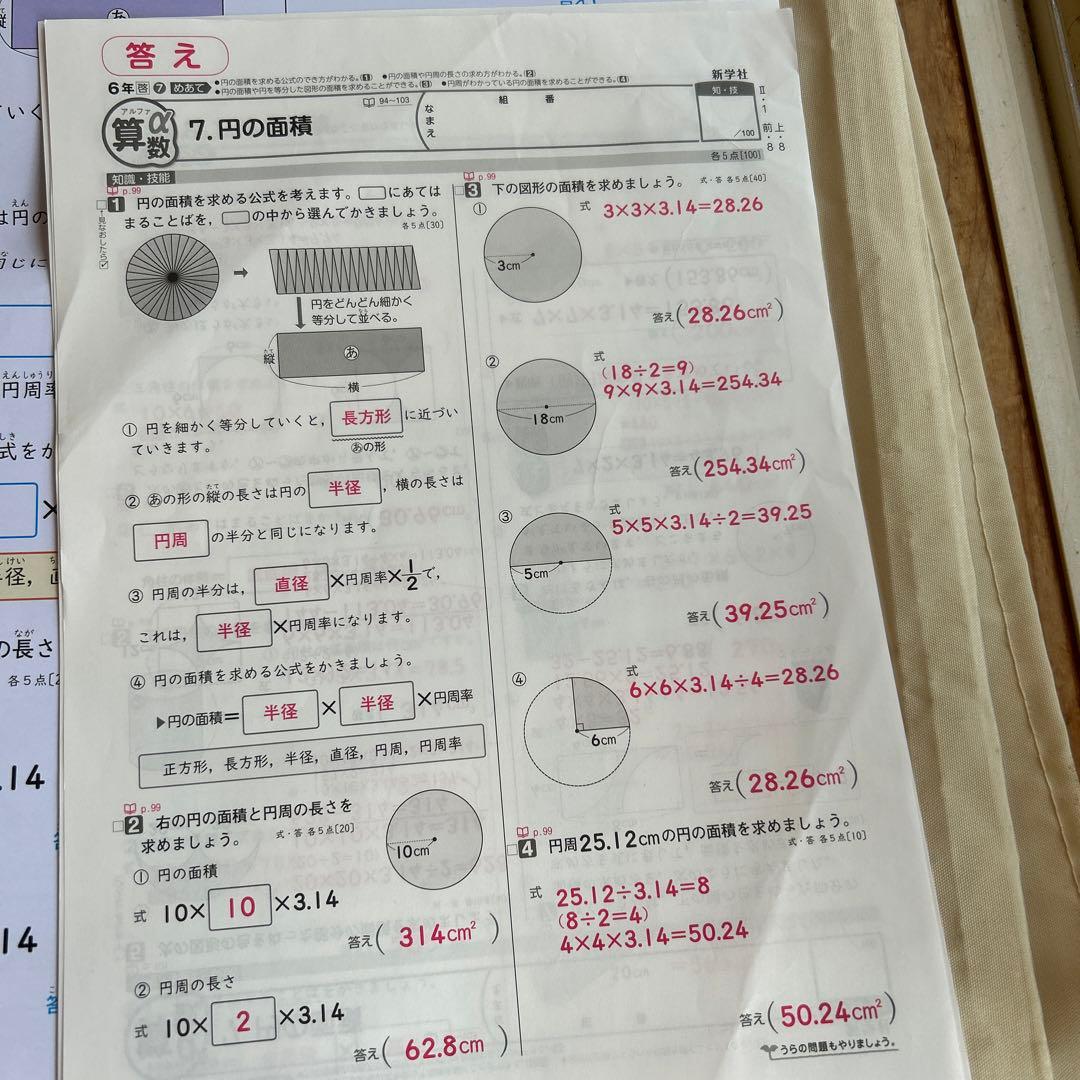 答え
6年 啓 7 めあて
●円の面積を求める公式のでき方がわかる。(1) ●円の面積や円周の長さの求め方がわかる。(2)
●円の面積や円を等分した図形の面積を求めることができる。(3) ●円周がわかっている円の面積を求めることができる。(4)
新学社
Ⅱ・1 前・8 上・8
アルファ
算数α
7. 円の面積
94〜103
なまえ
組 番
知・技
/100
各5点[100]
知識・技能
p.99
↑見なおしたら✓
1 円の面積を求める公式を考えます。□にあてはまることばを,
□の中から選んでかきましょう。
各5点[30]
円をどんどん細かく
等分して並べる。
なら
縦
たて
あ
横
① 円を細かく等分していくと, 長方形 に近づい
ていきます。
あの形
② あの形の縦の長さは円の 半径 , 横の長さは
たて
円周 の半分と同じになります。
③ 円周の半分は, 直径 ×円周率×1/2で,
これは, 半径 ×円周率になります。
④ 円の面積を求める公式をかきましょう。
▶円の面積= 半径 × 半径 ×円周率
正方形, 長方形, 半径, 直径, 円周, 円周率
p.99
2 右の円の面積と円周の長さを
求めましょう。
式・答 各5点[20]
10cm
① 円の面積
式 10× 10 ×3.14
答え( 314cm² )
② 円周の長さ
式 10× 2 ×3.14
答え( 62.8cm )
p.99
3 下の図形の面積を求めましょう。
式・答 各5点[40]
①
3cm
式 3×3×3.14=28.26
答え(28.26cm²)
②
18cm
式
(18÷2=9)
9×9×3.14=254.34
答え(254.34cm²)
③
5cm
式
5×5×3.14÷2=39.25
答え(39.25cm²)
④
6cm
式
6×6×3.14÷4=28.26
答え(28.26cm²)
p.99
4 円周25.12cmの円の面積を求めましょう。
式・答 各5点[10]
式 25.12÷3.14=8
(8÷2=4)
4×4×3.14=50.24
答え(50.24cm²)
うらの問題もやりましょう。